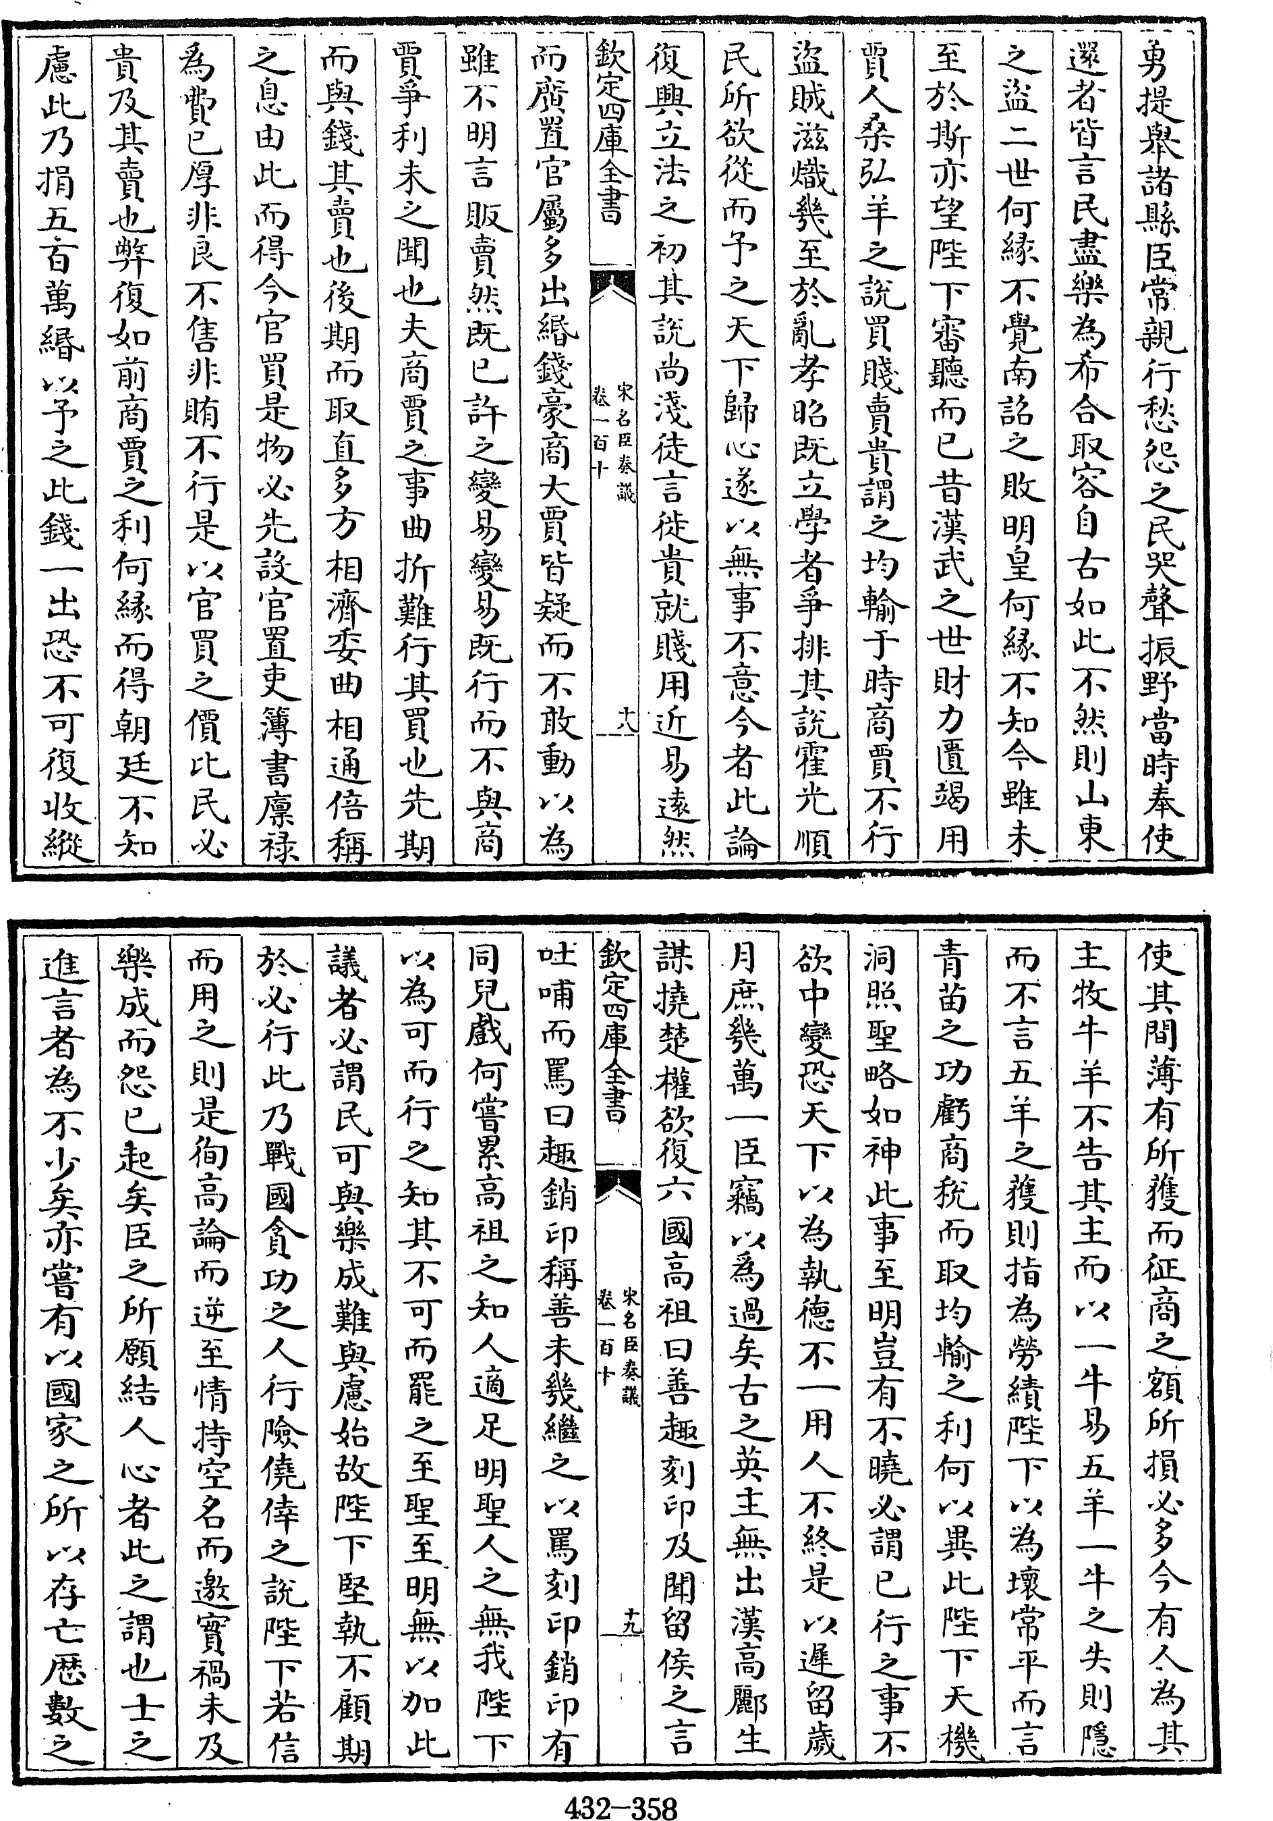 勇提舉諸縣臣常親行愁怨之民哭聲振野當時奉使
還者皆言民盡樂為希合取容自古如此不然則山東
之盜二世何緣不覺南詔之敗明皇何緣不知今雖未
至於斯亦望陛下審聽而已昔漢武之世財力匱竭用
賈人桑弘羊之說買賤賣貴謂之均輸于時商賈不行
盜賊滋熾幾至於亂孝昭既立學者爭排其說霍光順
民所欲從而予之天下歸心遂以無事不意今者此論
復興立法之初其說尚淺徒言徙貴就賤用近易遠然
欽定四庫全書
宋名臣奏議
卷一百十
十八
而廣置官屬多出緡錢豪商大賈皆疑而不敢動以為
雖不明言販賣然既已許之變易變易既行而不與商
賈爭利未之聞也夫商賈之事曲折難行其買也先期
而與錢其賣也後期而取直多方相濟委曲相通倍稱
之息由此而得今官買是物必先設官置吏簿書廩祿
為費已厚非良不售非賄不行是以官買之價比民必
貴及其賣也弊復如前商賈之利何緣而得朝廷不知
慮此乃捐五百萬緡以予之此錢一出恐不可復收縱
使其間薄有所獲而征商之額所損必多今有人為其
主牧牛羊不告其主而以一牛易五羊一牛之失則隱
而不言五羊之獲則指為勞績陛下以為壞常平而言
青苗之功虧商稅而取均輸之利何以異此陛下天機
洞照聖略如神此事至明豈有不曉必謂已行之事不
欲中變恐天下以為執德不一用人不終是以遲留歲
月庶幾萬一臣竊以為過矣古之英主無出漢高酈生
謀撓楚權欲復六國高祖曰善趣刻印及聞留侯之言
欽定四庫全書
宋名臣奏議
卷一百十
十九
吐哺而罵曰趣銷印稱善未幾繼之以罵刻印銷印有
同兒戲何嘗累高祖之知人適足明聖人之無我陛下
以為可而行之知其不可而罷之至聖至明無以加此
議者必謂民可與樂成難與慮始故陛下堅執不顧期
於必行此乃戰國貪功之人行險僥倖之說陛下若信
而用之則是徇高論而逆至情持空名而邀實禍未及
樂成而怨已起矣臣之所願結人心者此之謂也士之
進言者為不少矣亦嘗有以國家之所以存亡歷數之
432-358